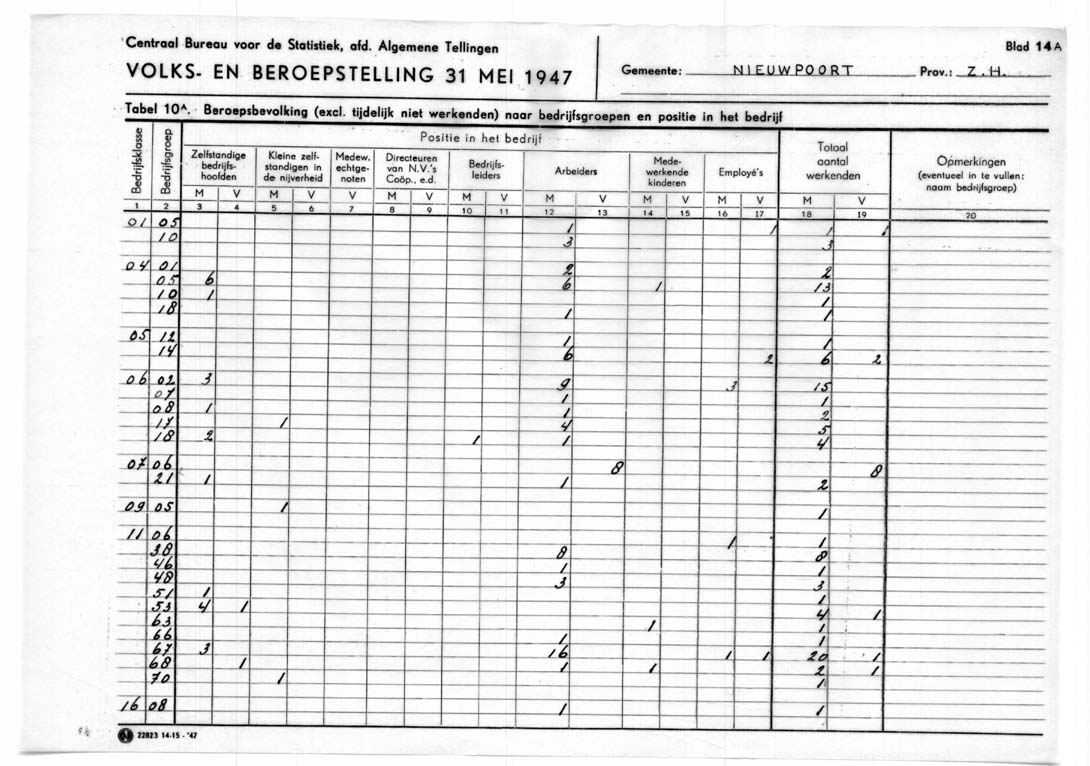 Centraal Bureau voor de Statistiek, afd. Algemene Tellingen
Blad 14A
VOLKS- EN BEROEPSTELLING 31 MEI 1947
Gemeente: NIEUWPOORT Prov.: Z.H.
Tabel 10A. Beroepsbevolking (excl. tijdelijk niet werkenden) naar bedrijfsgroepen en positie in het bedrijf
Bedrijfsklasse
Bedrijfsgroep
Positie in het bedrijf
Zelfstandige bedrijfs-hoofden
Kleine zelf-standigen in de nijverheid
Medew. echtge-noten
Directeuren van N.V.'s Coöp., e.d.
Bedrijfs-leiders
Arbeiders
Mede-werkende kinderen
Employé's
Totaal aantal werkenden
Opmerkingen (eventueel in te vullen: naam bedrijfsgroep)
M V M V V M V M V M V M V M V M V
1 2 3 4 5 6 7 8 9 10 11 12 13 14 15 16 17 18 19 20
01 05 1 1 1 1
10 3 3
04 01 2 2
05 6 6 1 13
10 1 1
18 1 1
05 12 1 1
14 6 2 6 2
06 02 3 9 3 15
07 1 1
08 1 1 2
17 1 4 5
18 2 1 1 4
07 06 8 8
21 1 1 2
09 05 1 1
11 06 1 1
38 8 8
46 1 1
48 3 3
51 1 1
53 4 1 4 1
63 1 1
66 1 1
67 3 16 1 1 20 1
68 1 1 1 2 1
70 1 1
16 08 1 1
22823 14-15 - '47